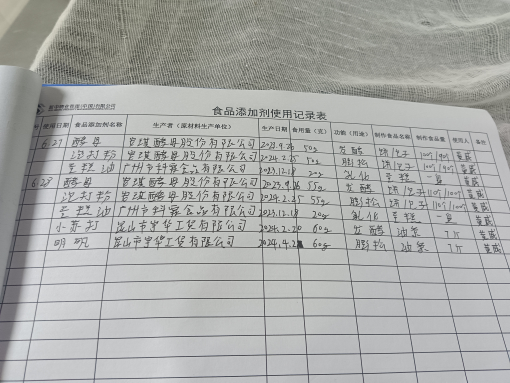 食品添加剂使用记录表
使用日期 食品添加剂名称 生产者（原材料生产单位） 生产日期 食用量（克） 功能（用途） 制作食品名称 制作食品量 使用人 备注
6.27 酵母 安琪酵母股份有限公司 2023.9.26 50g 发酵 饼/包子 黄威
泡打粉 安琪酵母股份有限公司 2024.2.25 50g 膨松 饼/包子 黄威
油 广州市 食品有限公司 2023.12.18 20g 乳化 一盘 黄威
6.28 酵母 安琪酵母股份有限公司 2023.9.26 55g 发酵 饼/包子 黄威
泡打粉 安琪酵母股份有限公司 2024.2.25 55g 膨松 饼/包子 黄威
油 广州市 食品有限公司 2023.12.18 20g 乳化 一盘 黄威
小苏打 昆山市 华工贸有限公司 2024.2.20 60g 发酵 油条 7斤 黄威
明矾 昆山市 华工贸有限公司 60g 膨松 油条 7斤 黄威